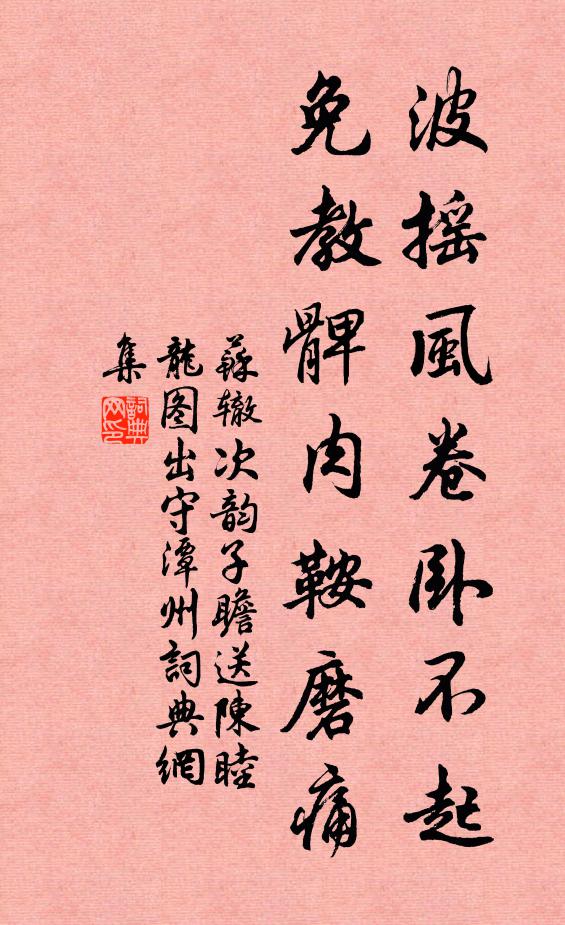 波摇風卷卧不起
免教髀肉鞍磨痛
蘇辙次韵子瞻送陳睦
龍图出守潭州詞典網
集
詞典
网印